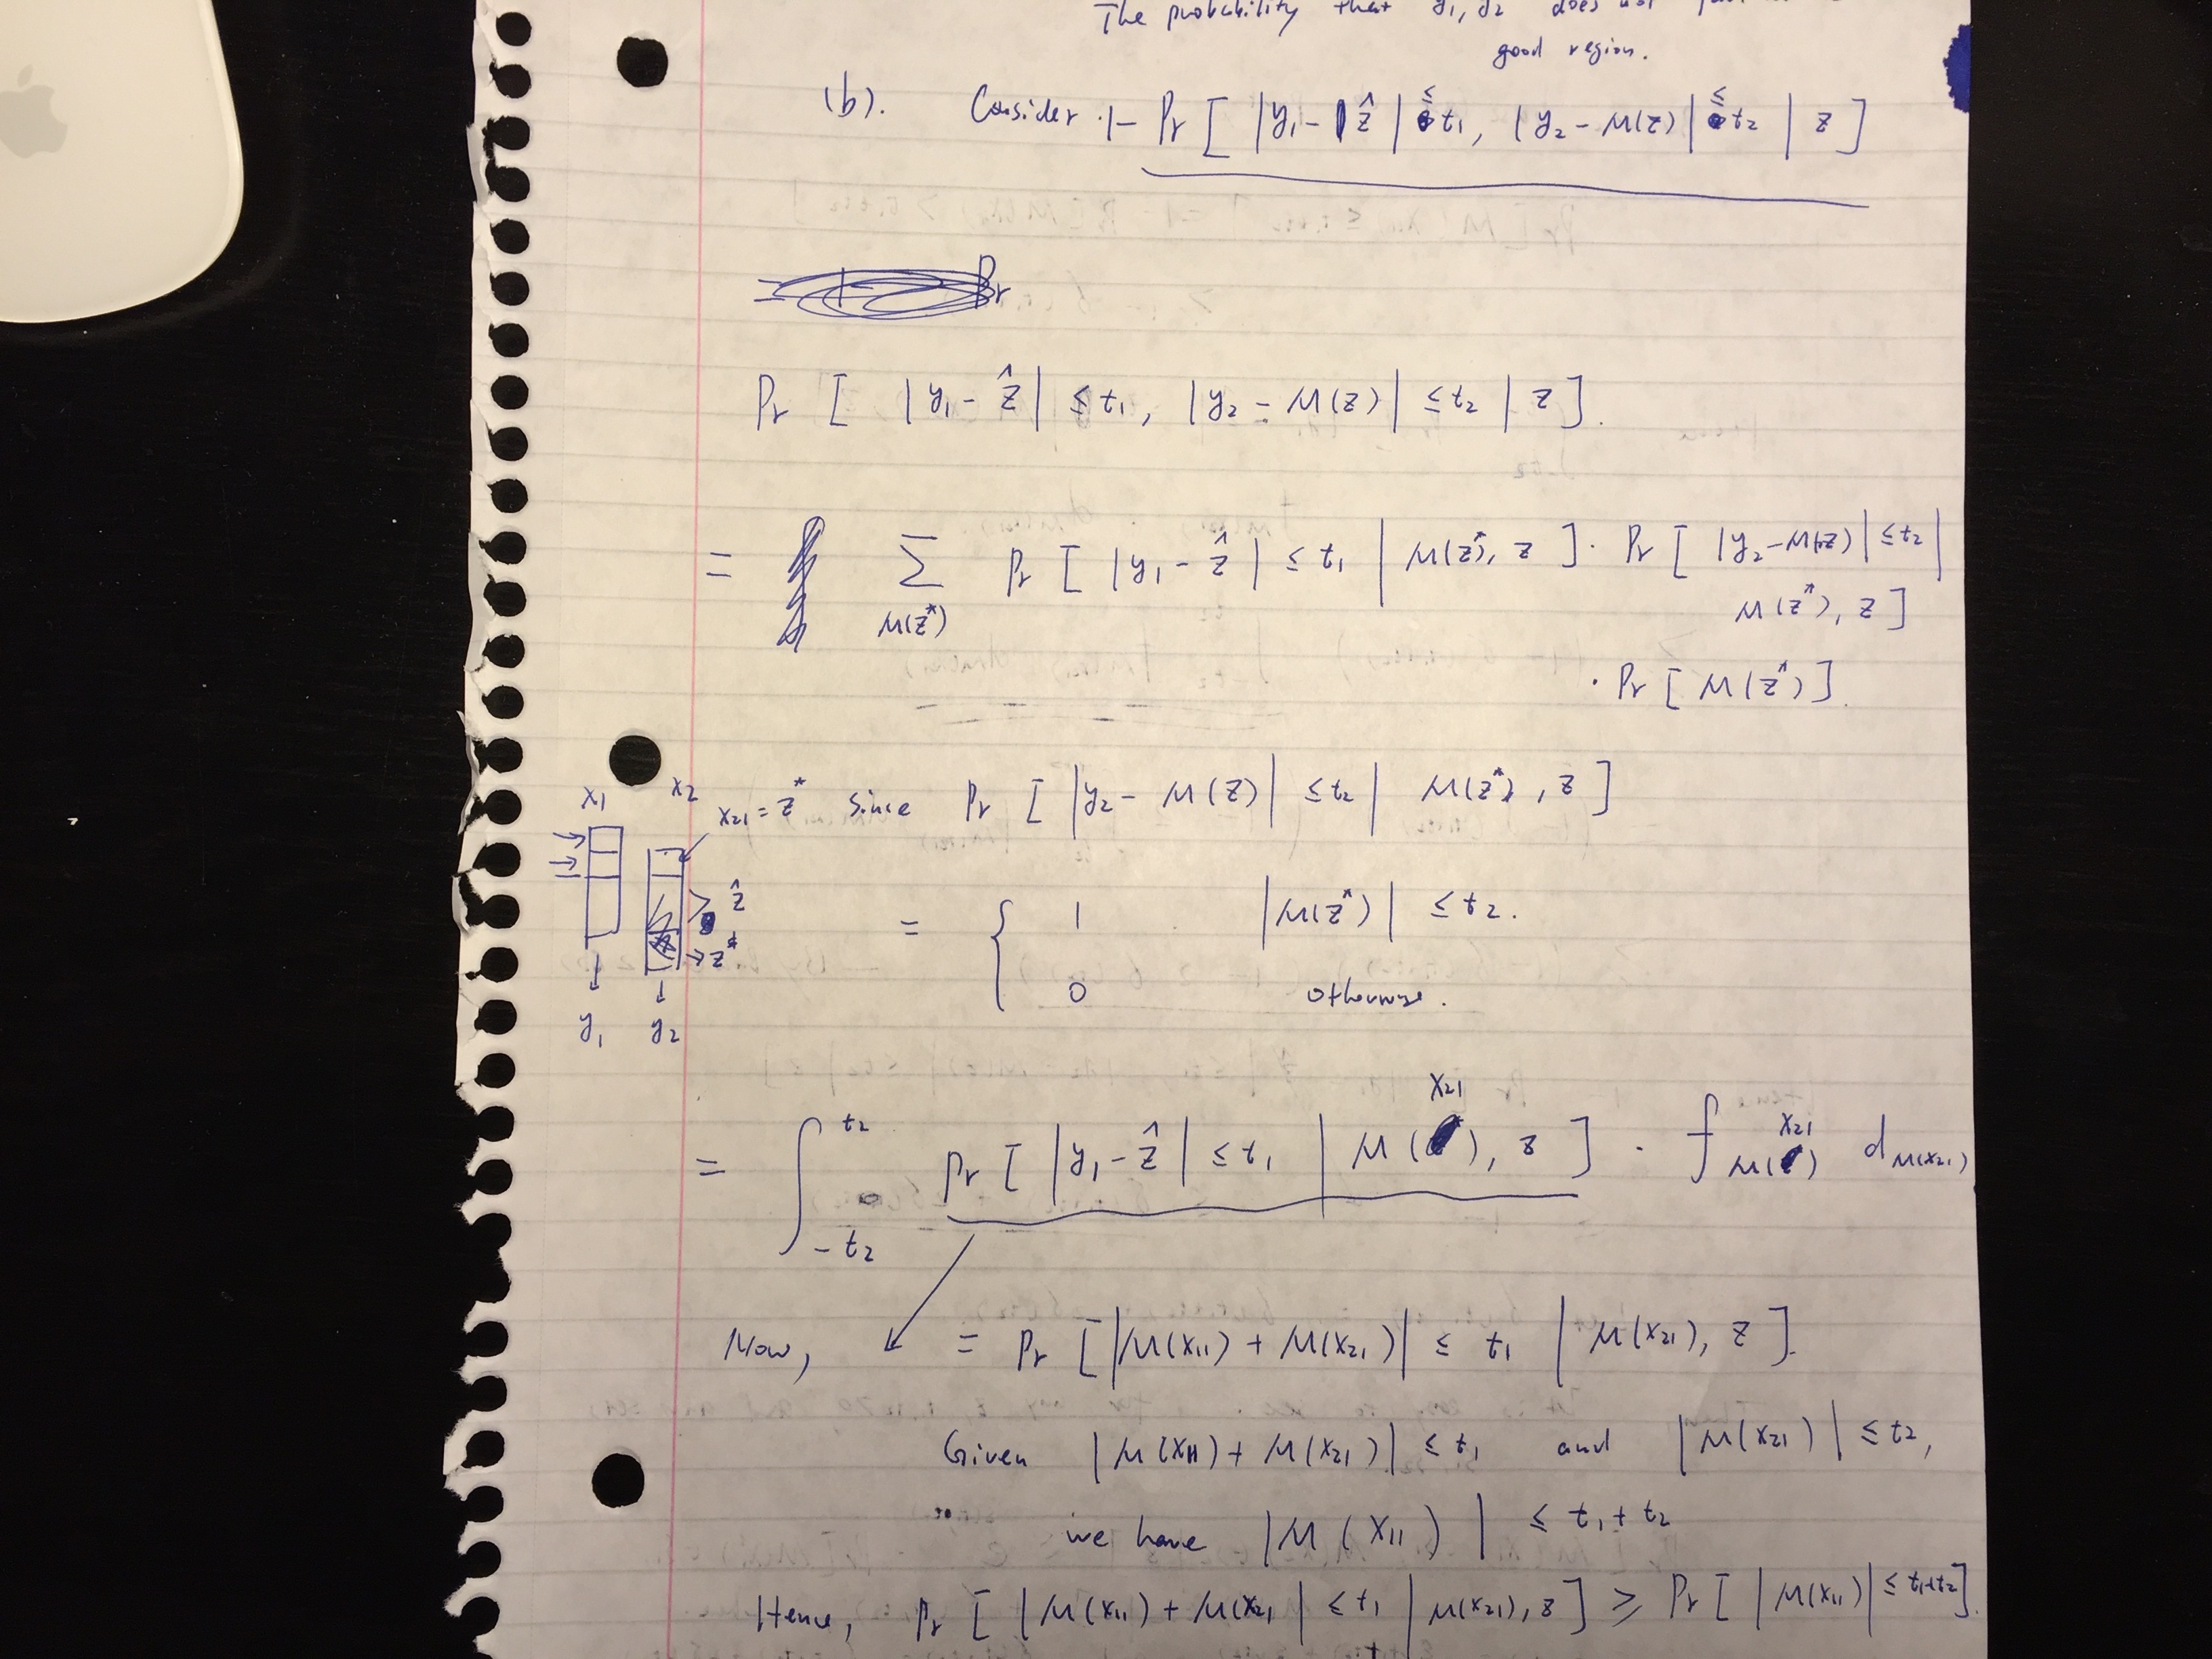 The probability that y₁, y₂ does not
good region.
(b). Consider 1 - Pr [ |y₁ - ẑ| ≤ t₁, |y₂ - M(z)| ≤ t₂ | z ]
Pr
Pr [ |y₁ - ẑ| ≤ t₁, |y₂ - M(z)| ≤ t₂ | z ].
= Σ Pr [ |y₁ - ẑ| ≤ t₁ | M(z*), z ] · Pr [ |y₂ - M(z)| ≤ t₂ |
M(z*) M(z*), z ]
· Pr [ M(z*) ].
x₁ x₂ x₂₁ = z* since Pr [ |y₂ - M(z)| ≤ t₂ | M(z*), z ]
ẑ
= { 1 |M(z*)| ≤ t₂.
→ z*
0 otherwise.
y₁ y₂
= ∫ t₂ -t₂ Pr [ |y₁ - ẑ| ≤ t₁ | M(x₂₁), z ] · f M(x₂₁) d M(x₂₁)
Now, = Pr [ |M(x₁₁) + M(x₂₁)| ≤ t₁ | M(x₂₁), z ].
Given |M(x₁₁) + M(x₂₁)| ≤ t₁ and |M(x₂₁)| ≤ t₂,
we have |M(x₁₁)| ≤ t₁ + t₂
Hence, Pr [ |M(x₁₁) + M(x₂₁| ≤ t₁ | M(x₂₁), z ] ≥ Pr [ |M(x₁₁)| ≤ t₁+t₂].